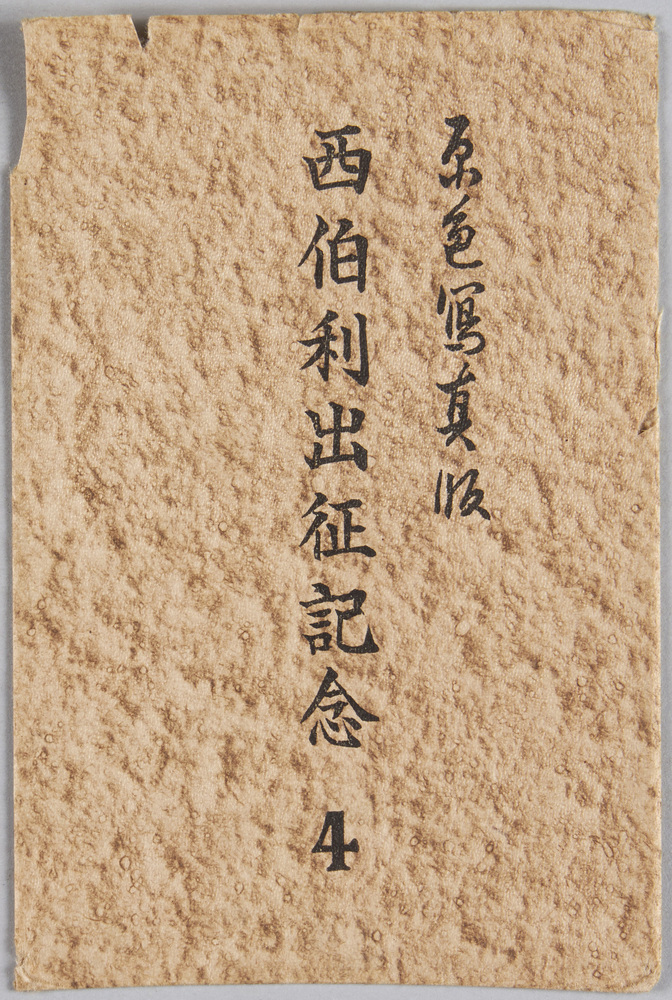 原色寫真版
西伯利出征記念 4